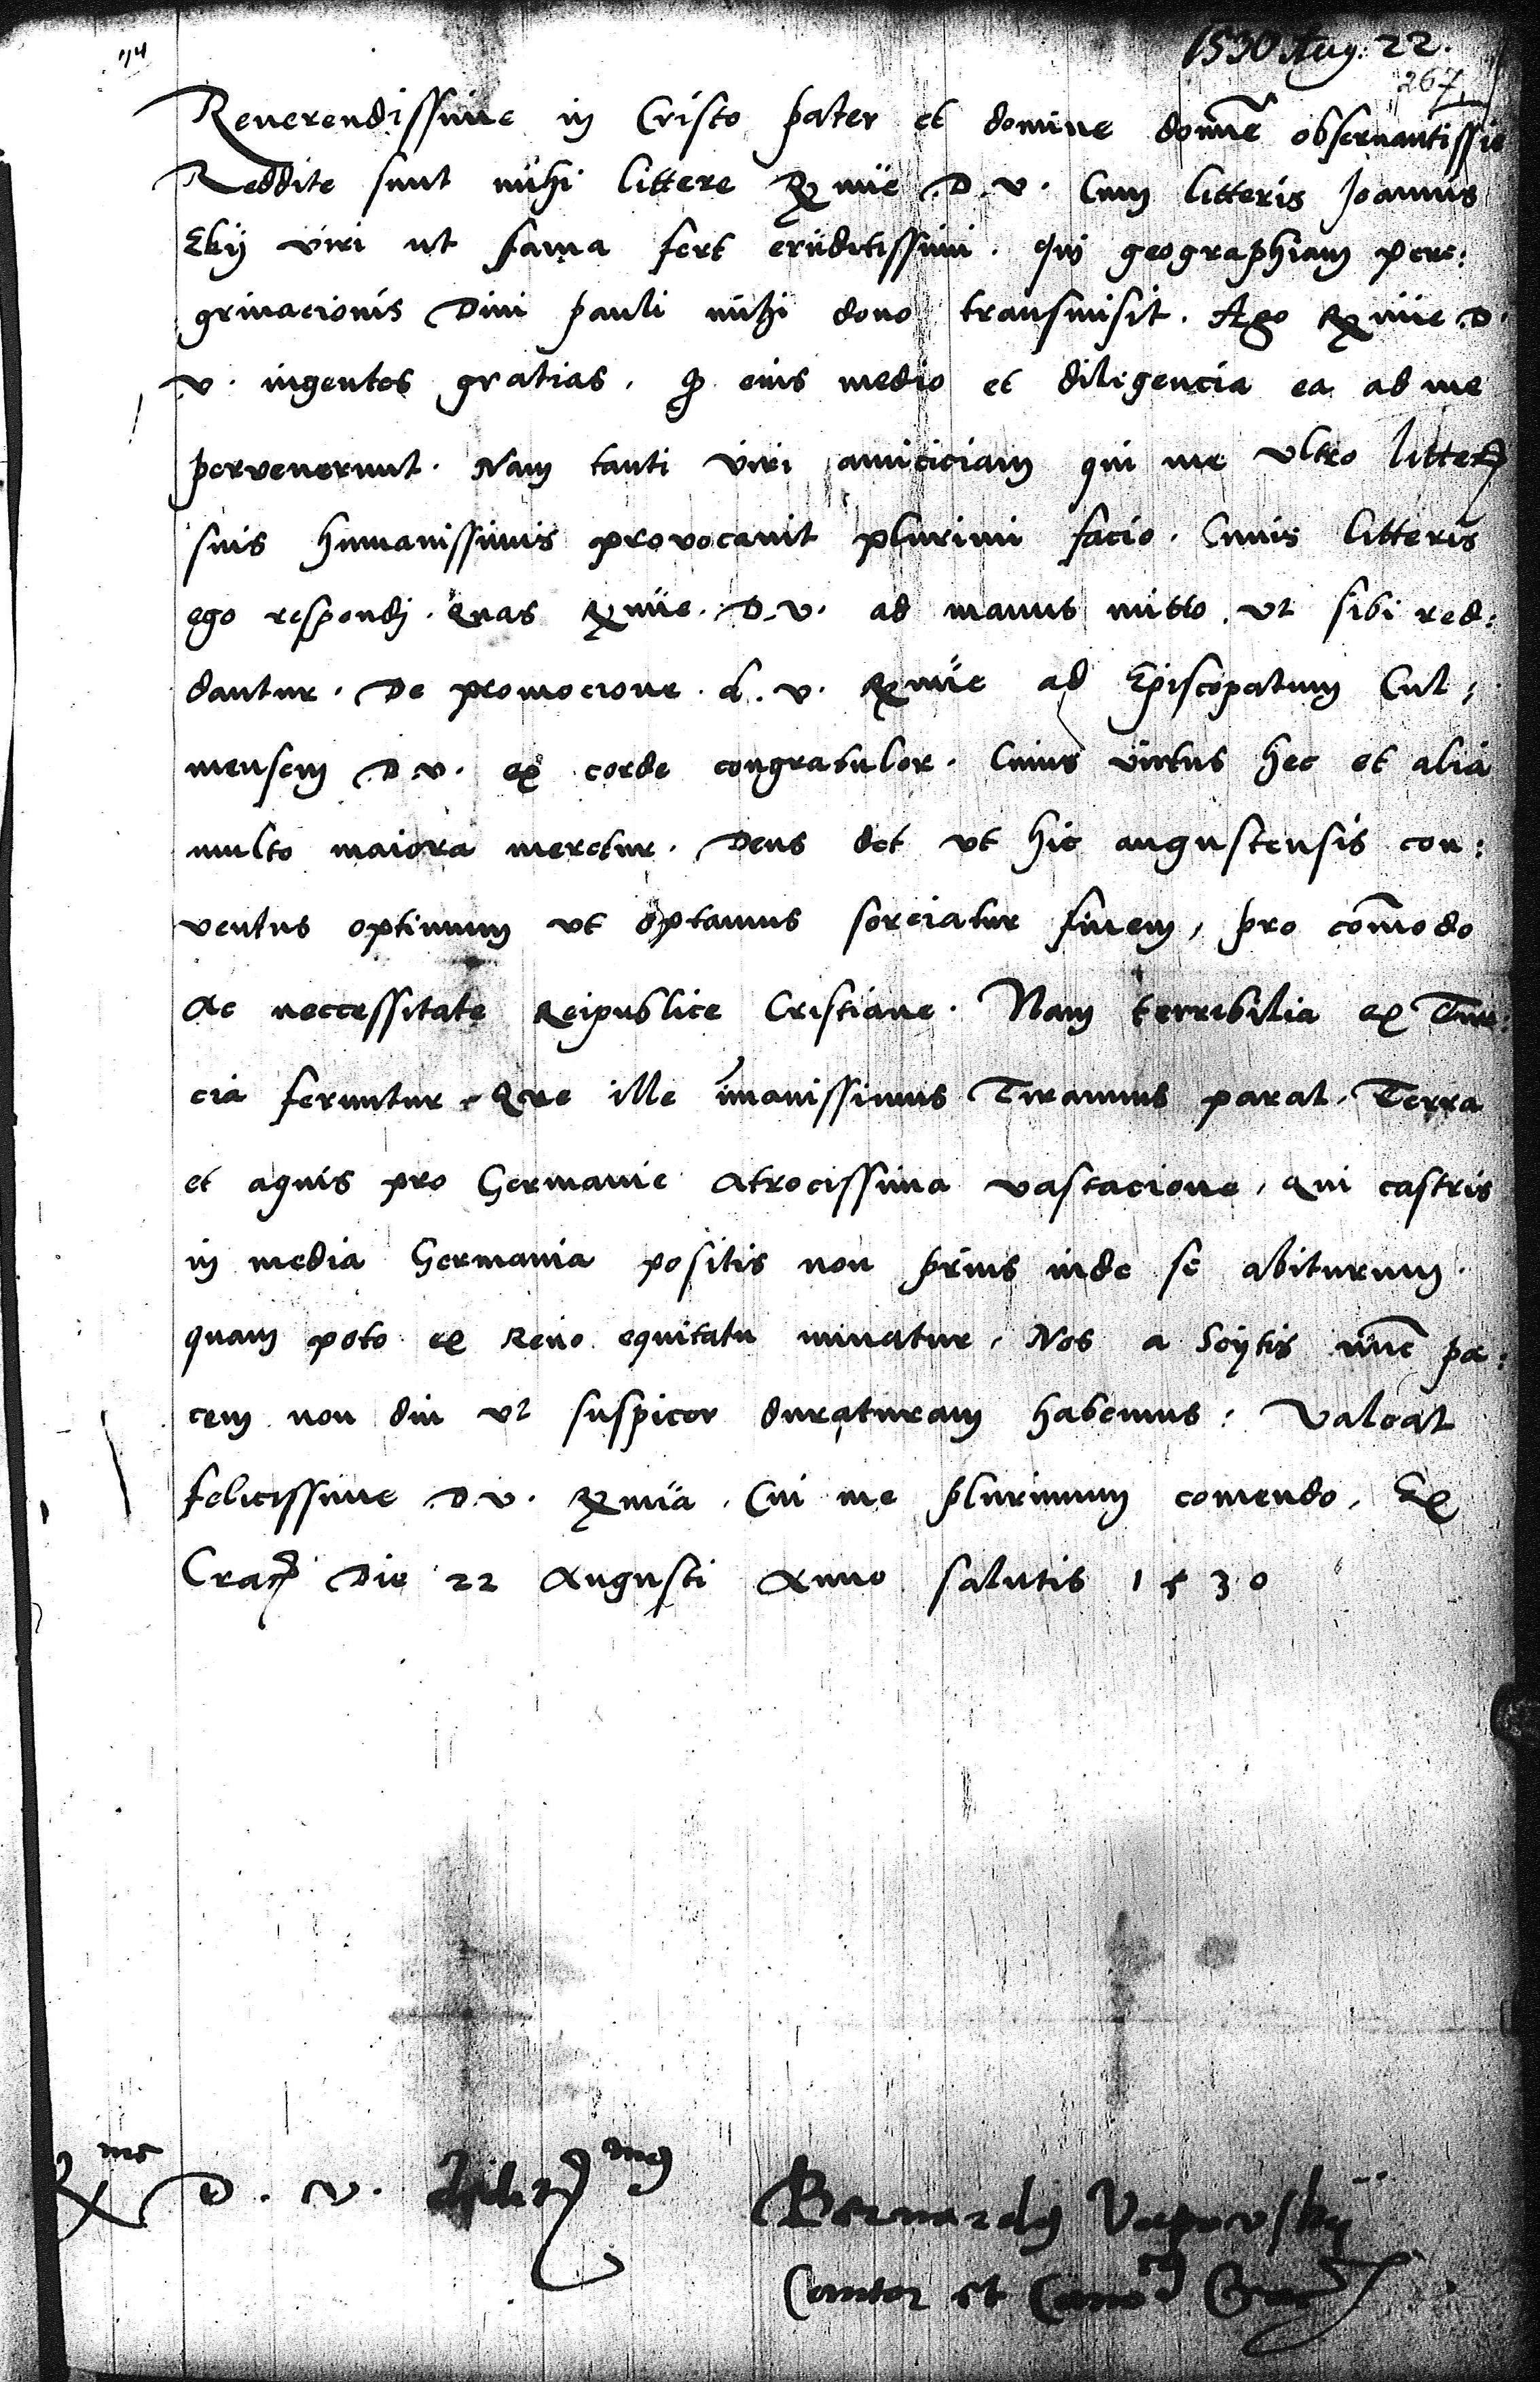 74
1530 Aug: 22.
267
Reuerendissime in Cristo pater et domine domine obseruantissie
Reddite sunt mihi littere Rx mie D. v. Cum litteris Joannis
Ekij viri ut fama fert eruditissimi. qui geographiam pere:
grinacionis Diui pauli mihi dono transmisit. Ago Rx mie D.
v. ingentes gratias. q eius medio et diligencia ea ad me
pervenerunt. Nam tanti viri amiciciam qui me vltro litter
suis humanissimis provocauit plurimi facio. Cuius litteris
ego respondi. quas Rx mie. D. v. ad manus mitto. vt sibi red:
dantur. De promocione. d. v. Rx mie ad Episcopatum Cul:
mensem D. v. ex corde congratulor. Cuius virtus hec et alia
multo maiora meretur. Deus det vt hic augustensis con:
ventus optimum vt optamus sorciatur finem, pro comodo
ac neccessitate Reipublice Cristiane. Nam terribilia ex Tur:
cia feruntur. Que ille imanissimus Tirannus parat. Terra
et aquis pro Germanie atrocissima vastacione, qui castris
in media Germania positis non prius inde se abiturum.
quam poto ex Reno equitatu minatur. Nos a Scytis nunc pa:
cem non diu vt suspicor duraturam habemus: Valeat
felicissime D. v. Rx mia. Cui me plurimum comendo. Ex
Crac Die 22 Augusti Anno salutis 1530
Rx me D. v. deditmus
Bernards Vapowskij
Cantor et Canocus Crac